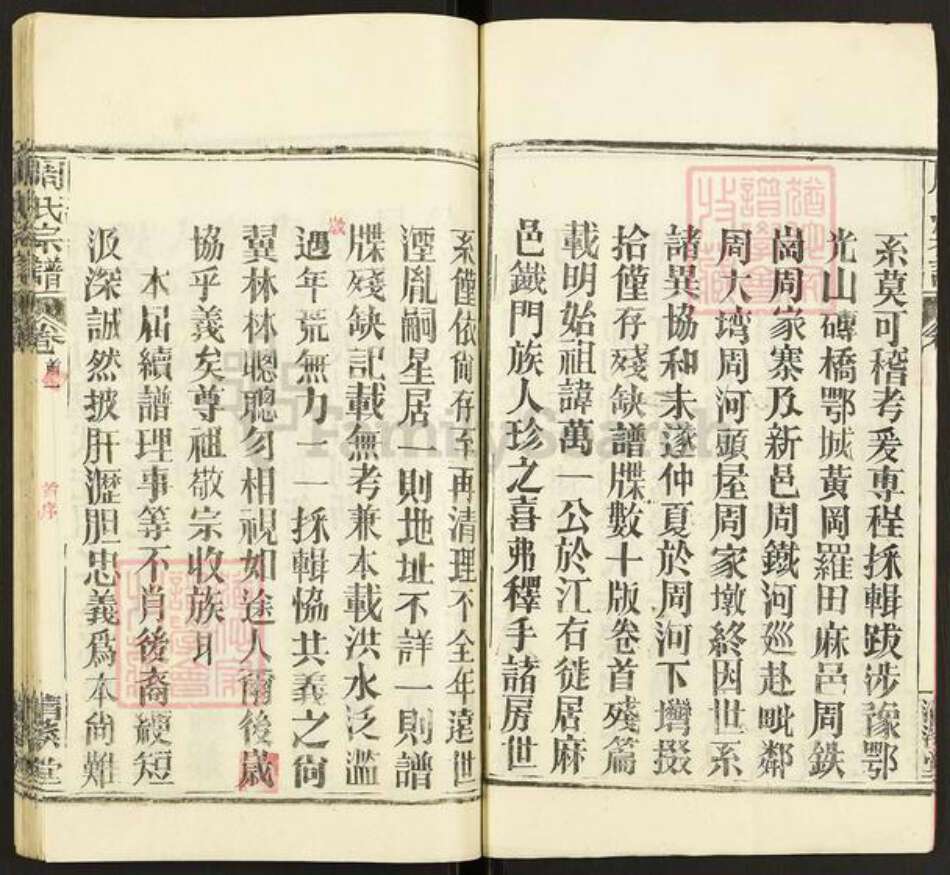 系莫可稽考爰専程採輯跋涉豫鄂
光山磚橋鄂城黃岡羅田麻邑周鉄
崗周家寨及新邑周鐵河廵赴毗鄰
周大塆周河頭屋周家墩終因世系
諸異協和未遂仲夏於周河下塆掇
拾僅存殘缺譜牒數十版卷首殘篇
載明始祖諱萬一公於江右徙居麻
邑鐵門族人珍之喜弗釋手諸房世
系僅依尙存至再清理不全年遠世
湮胤嗣星居一則地址不詳一則譜
牒殘缺記載無考兼本載洪水泛濫
遇年荒無力一一採輯恊共義之尙
歲
冀林林聰聰勿相視如途人爾後歲
協乎義矣尊祖敬宗收族耳
本屆續譜理事等不肖後裔綆短
汲深誠然披肝瀝胆忠義爲本尙難
周氏宗譜
卷
首
首序
堂
FamilySearch